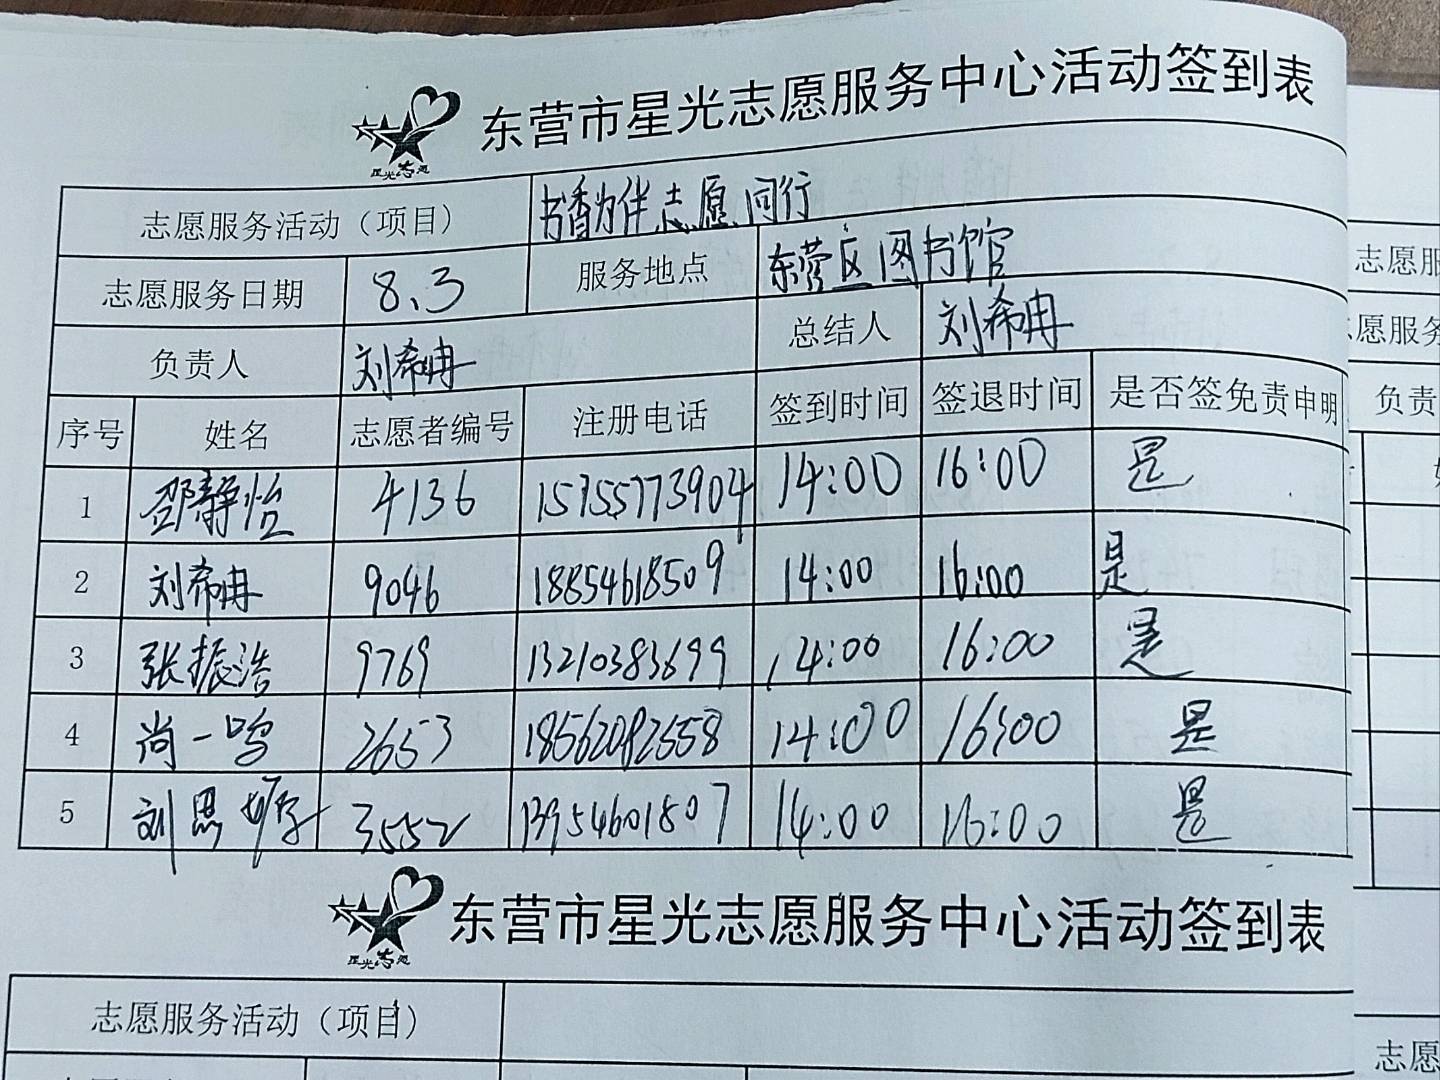 东营市星光志愿服务中心活动签到表
星光志愿
志愿服务活动（项目） 书香为伴志愿同行
志愿服务日期 8.3 服务地点 东营区图书馆
负责人 刘希冉 总结人 刘希冉
序号 姓名 志愿者编号 注册电话 签到时间 签退时间 是否签免责申明
1 邵静怡 4136 15755773904 14:00 16:00 是
2 刘希冉 9046 18854618509 14:00 16:00 是
3 张振浩 9769 13210383699 14:00 16:00 是
4 尚一鸣 2653 18562092558 14:00 16:00 是
5 刘恩 3552 13954601807 14:00 16:00 是
东营市星光志愿服务中心活动签到表
星光志愿
志愿服务活动（项目）
志愿服
愿服务
负责
志愿